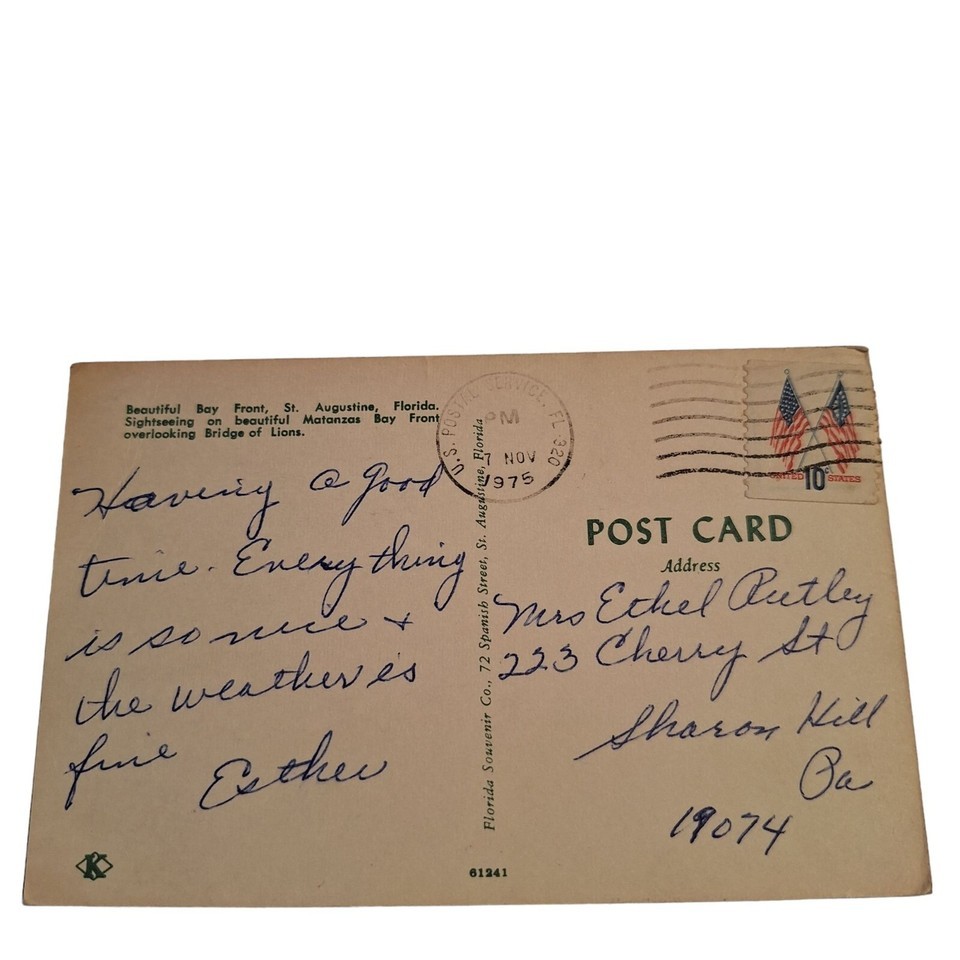 Beautiful Bay Front, St. Augustine, Florida.
Sightseeing on beautiful Matanzas Bay Front
overlooking Bridge of Lions.
Having a good
time. Everything
is so nice +
the weather is
fine
Esther
K
Florida Souvenir Co., 72 Spanish Street, St. Augustine, Florida
61241
U.S. POSTAL SERVICE, FL 320
PM
7 NOV
1975
UNITED 10c STATES
POST CARD
Address
Mrs Ethel Rutley
223 Cherry St
Sharon Hill
Pa
19074